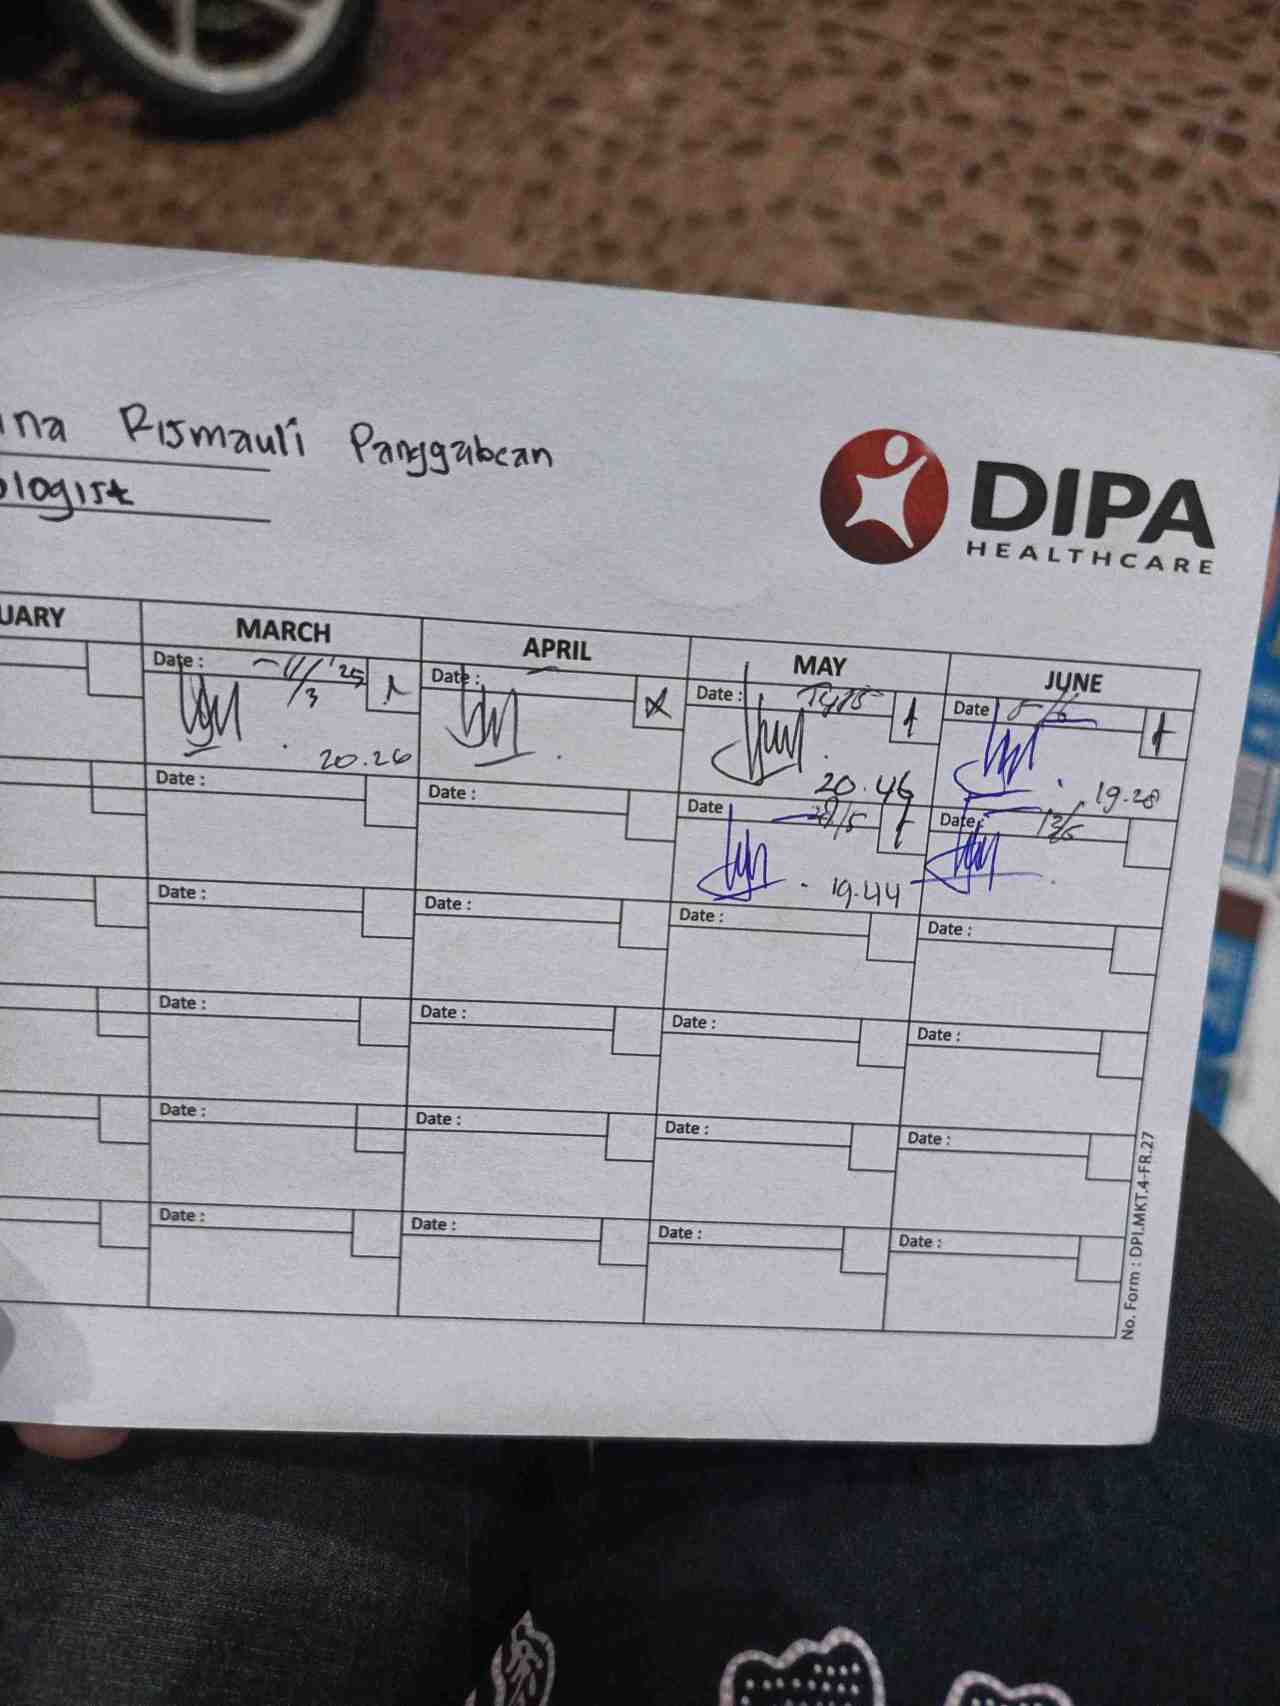 ina Rismauli Panggabean
ologist
DIPA
HEALTHCARE
UARY MARCH APRIL MAY JUNE
Date : 11/3 '25 Date : Date : Date 5/6
20.26 20.46 19.28
Date : Date : Date /5 Date : 12/6
19.44
Date : Date : Date : Date :
Date : Date : Date : Date :
Date : Date : Date : Date :
Date : Date : Date : Date :
No. Form : DPI.MKT.4-FR.27